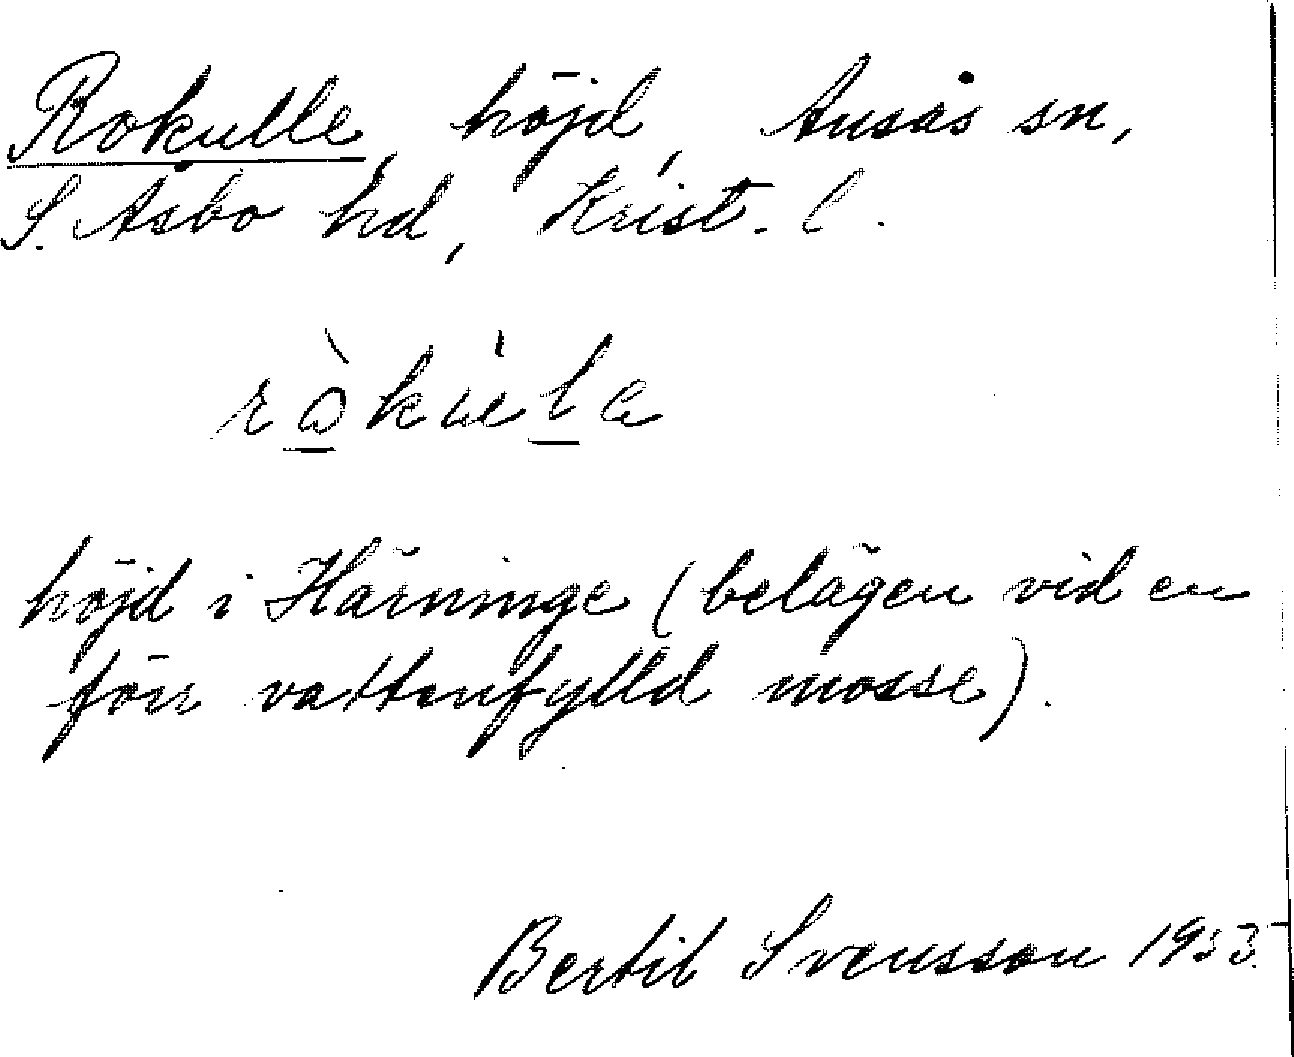 Rokulle, höjd, Ausås sn,
S. Åsbo hd, Krist. l.
höjd i Härninge (belägen vid en
förr vattenfylld mosse).
Bertil Svensson 1933.